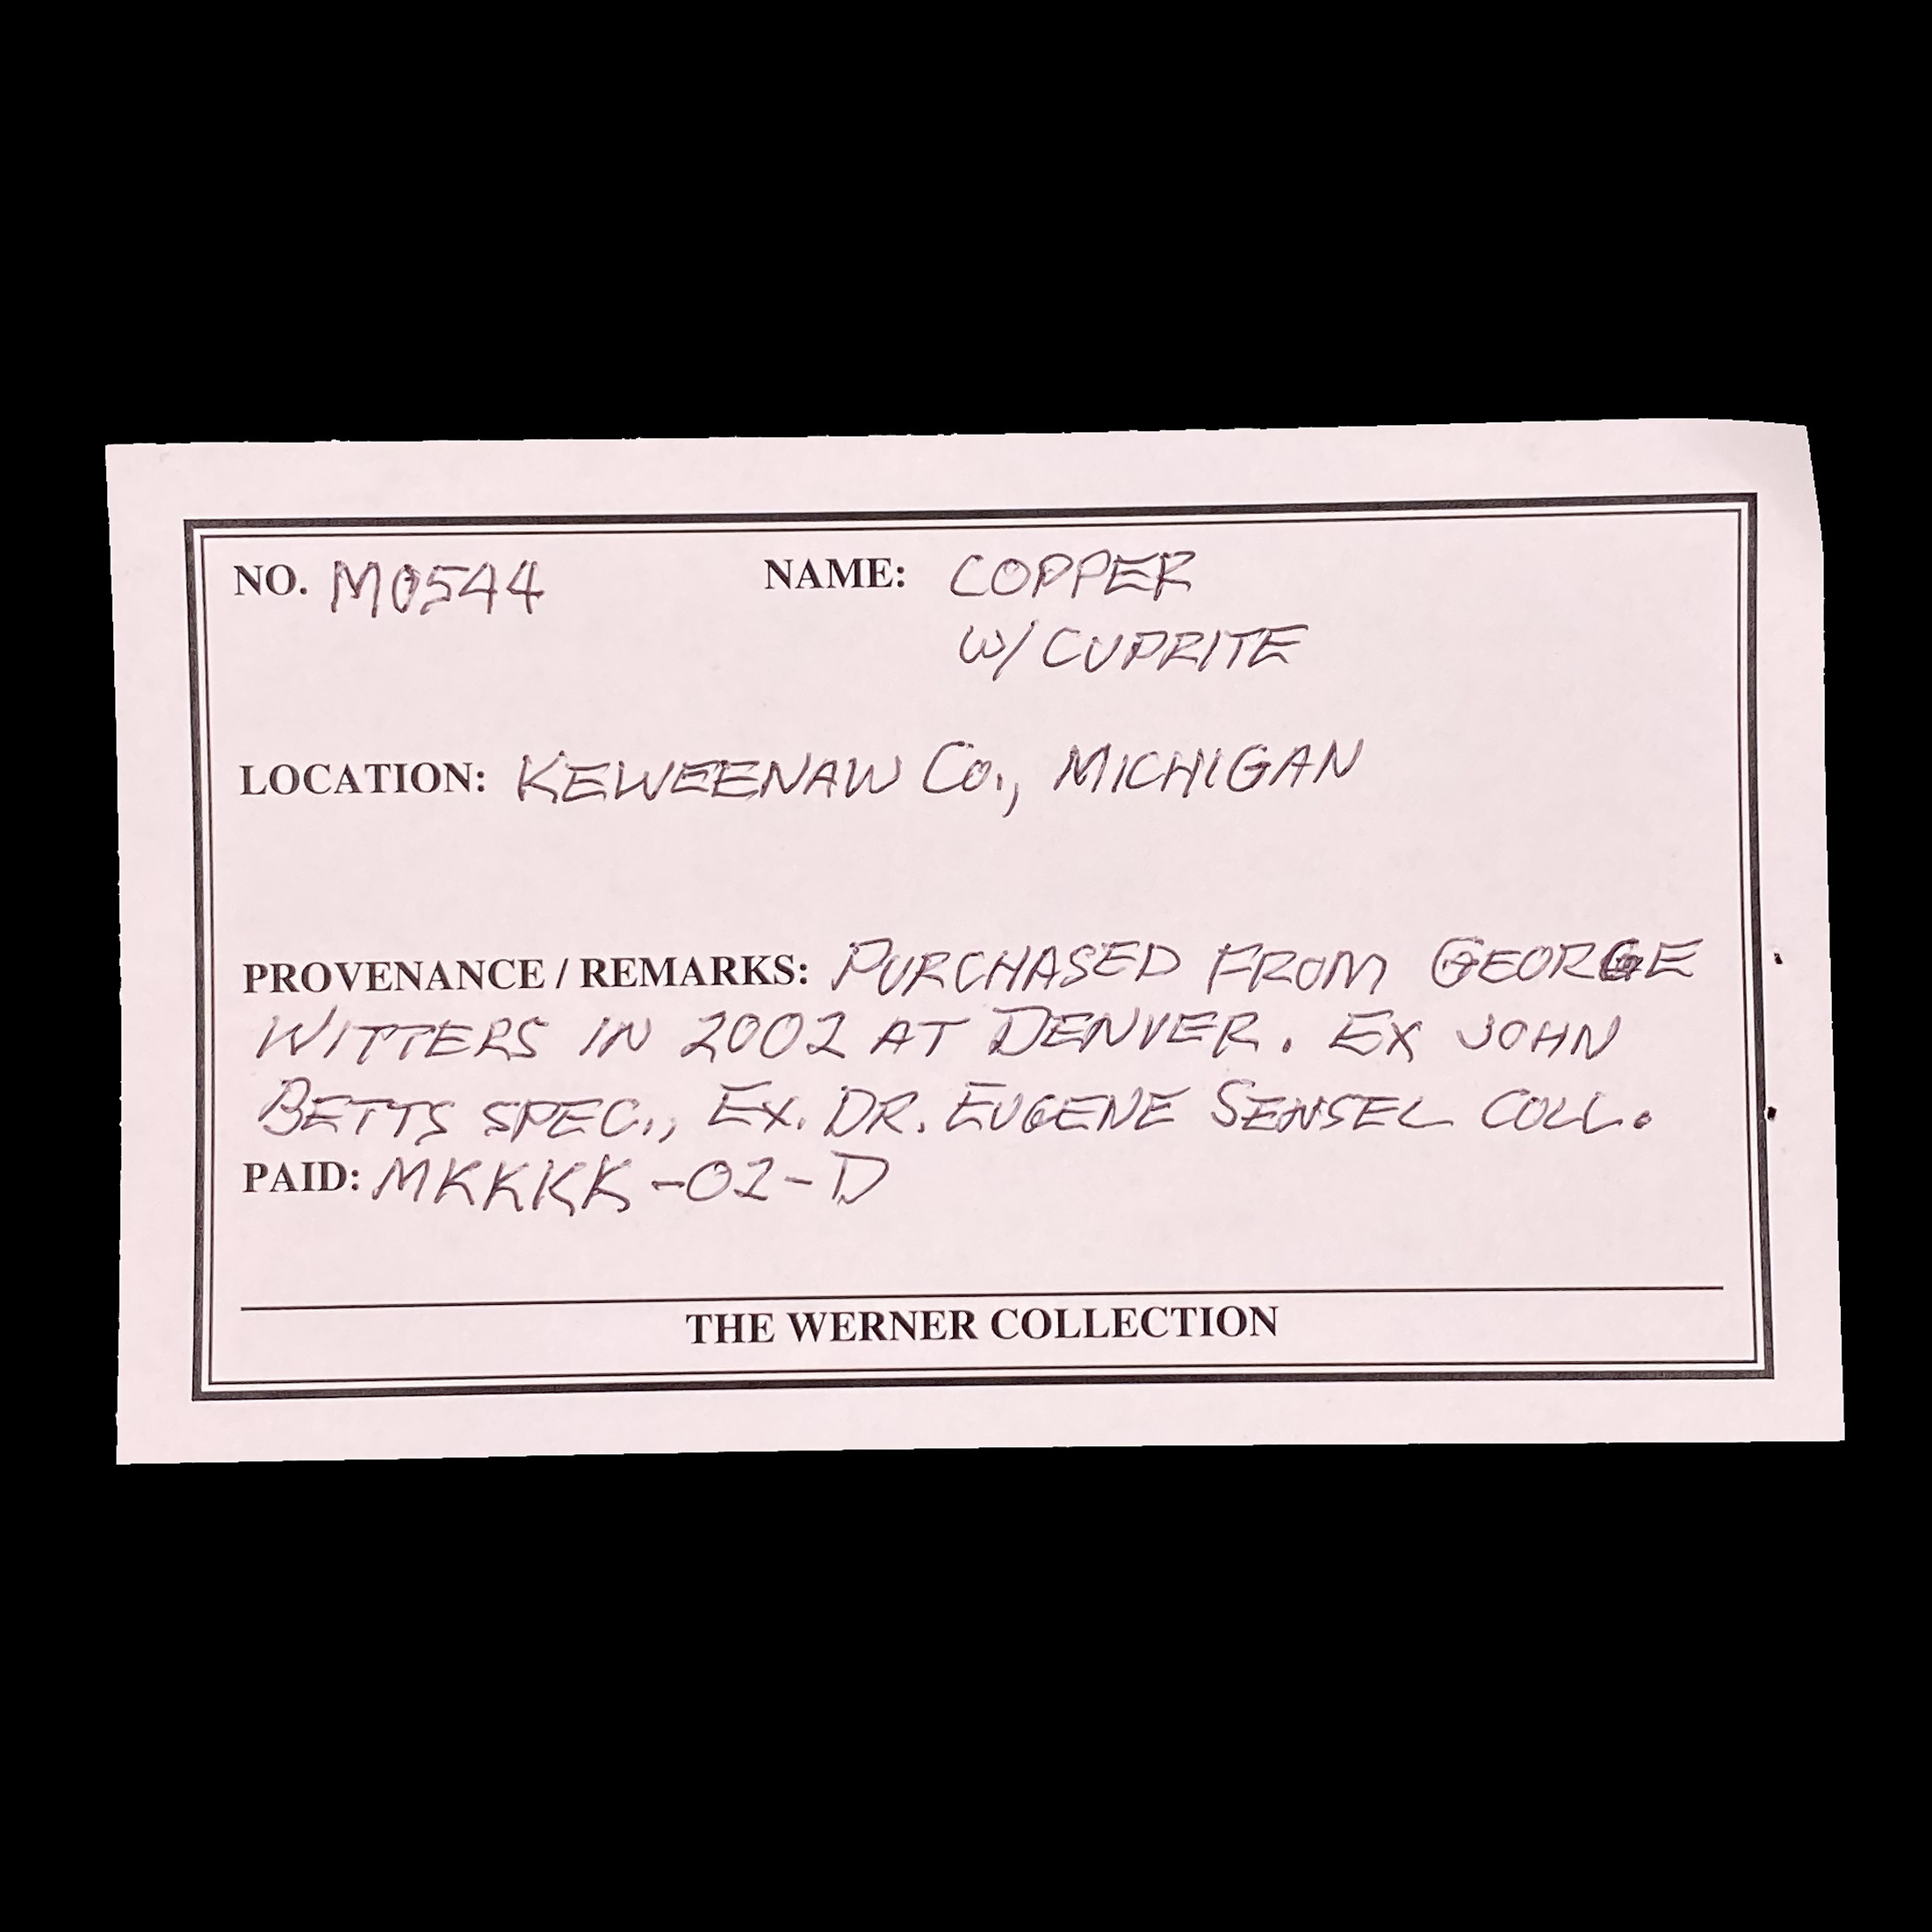 NO. M0544 NAME: COPPER
W/ CUPRITE
LOCATION: KEWEENAW CO., MICHIGAN
PROVENANCE / REMARKS: PURCHASED FROM GEORGE
WITTERS IN 2002 AT DENVER. EX JOHN
BETTS SPEC., EX. DR. EUGENE SENSEL COLL.
PAID: MKKKK-02-D
THE WERNER COLLECTION